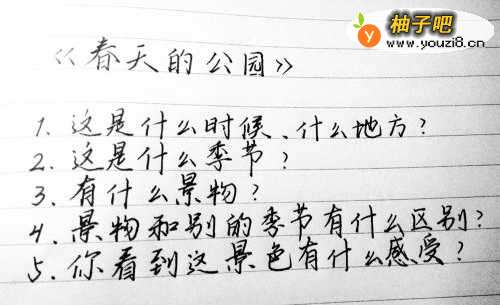 柚子吧
www.youzi8.cn
《春天的公园》
1. 这是什么时候、什么地方?
2. 这是什么季节?
3. 有什么景物?
4. 景物和别的季节有什么区别?
5. 你看到这景色有什么感受?